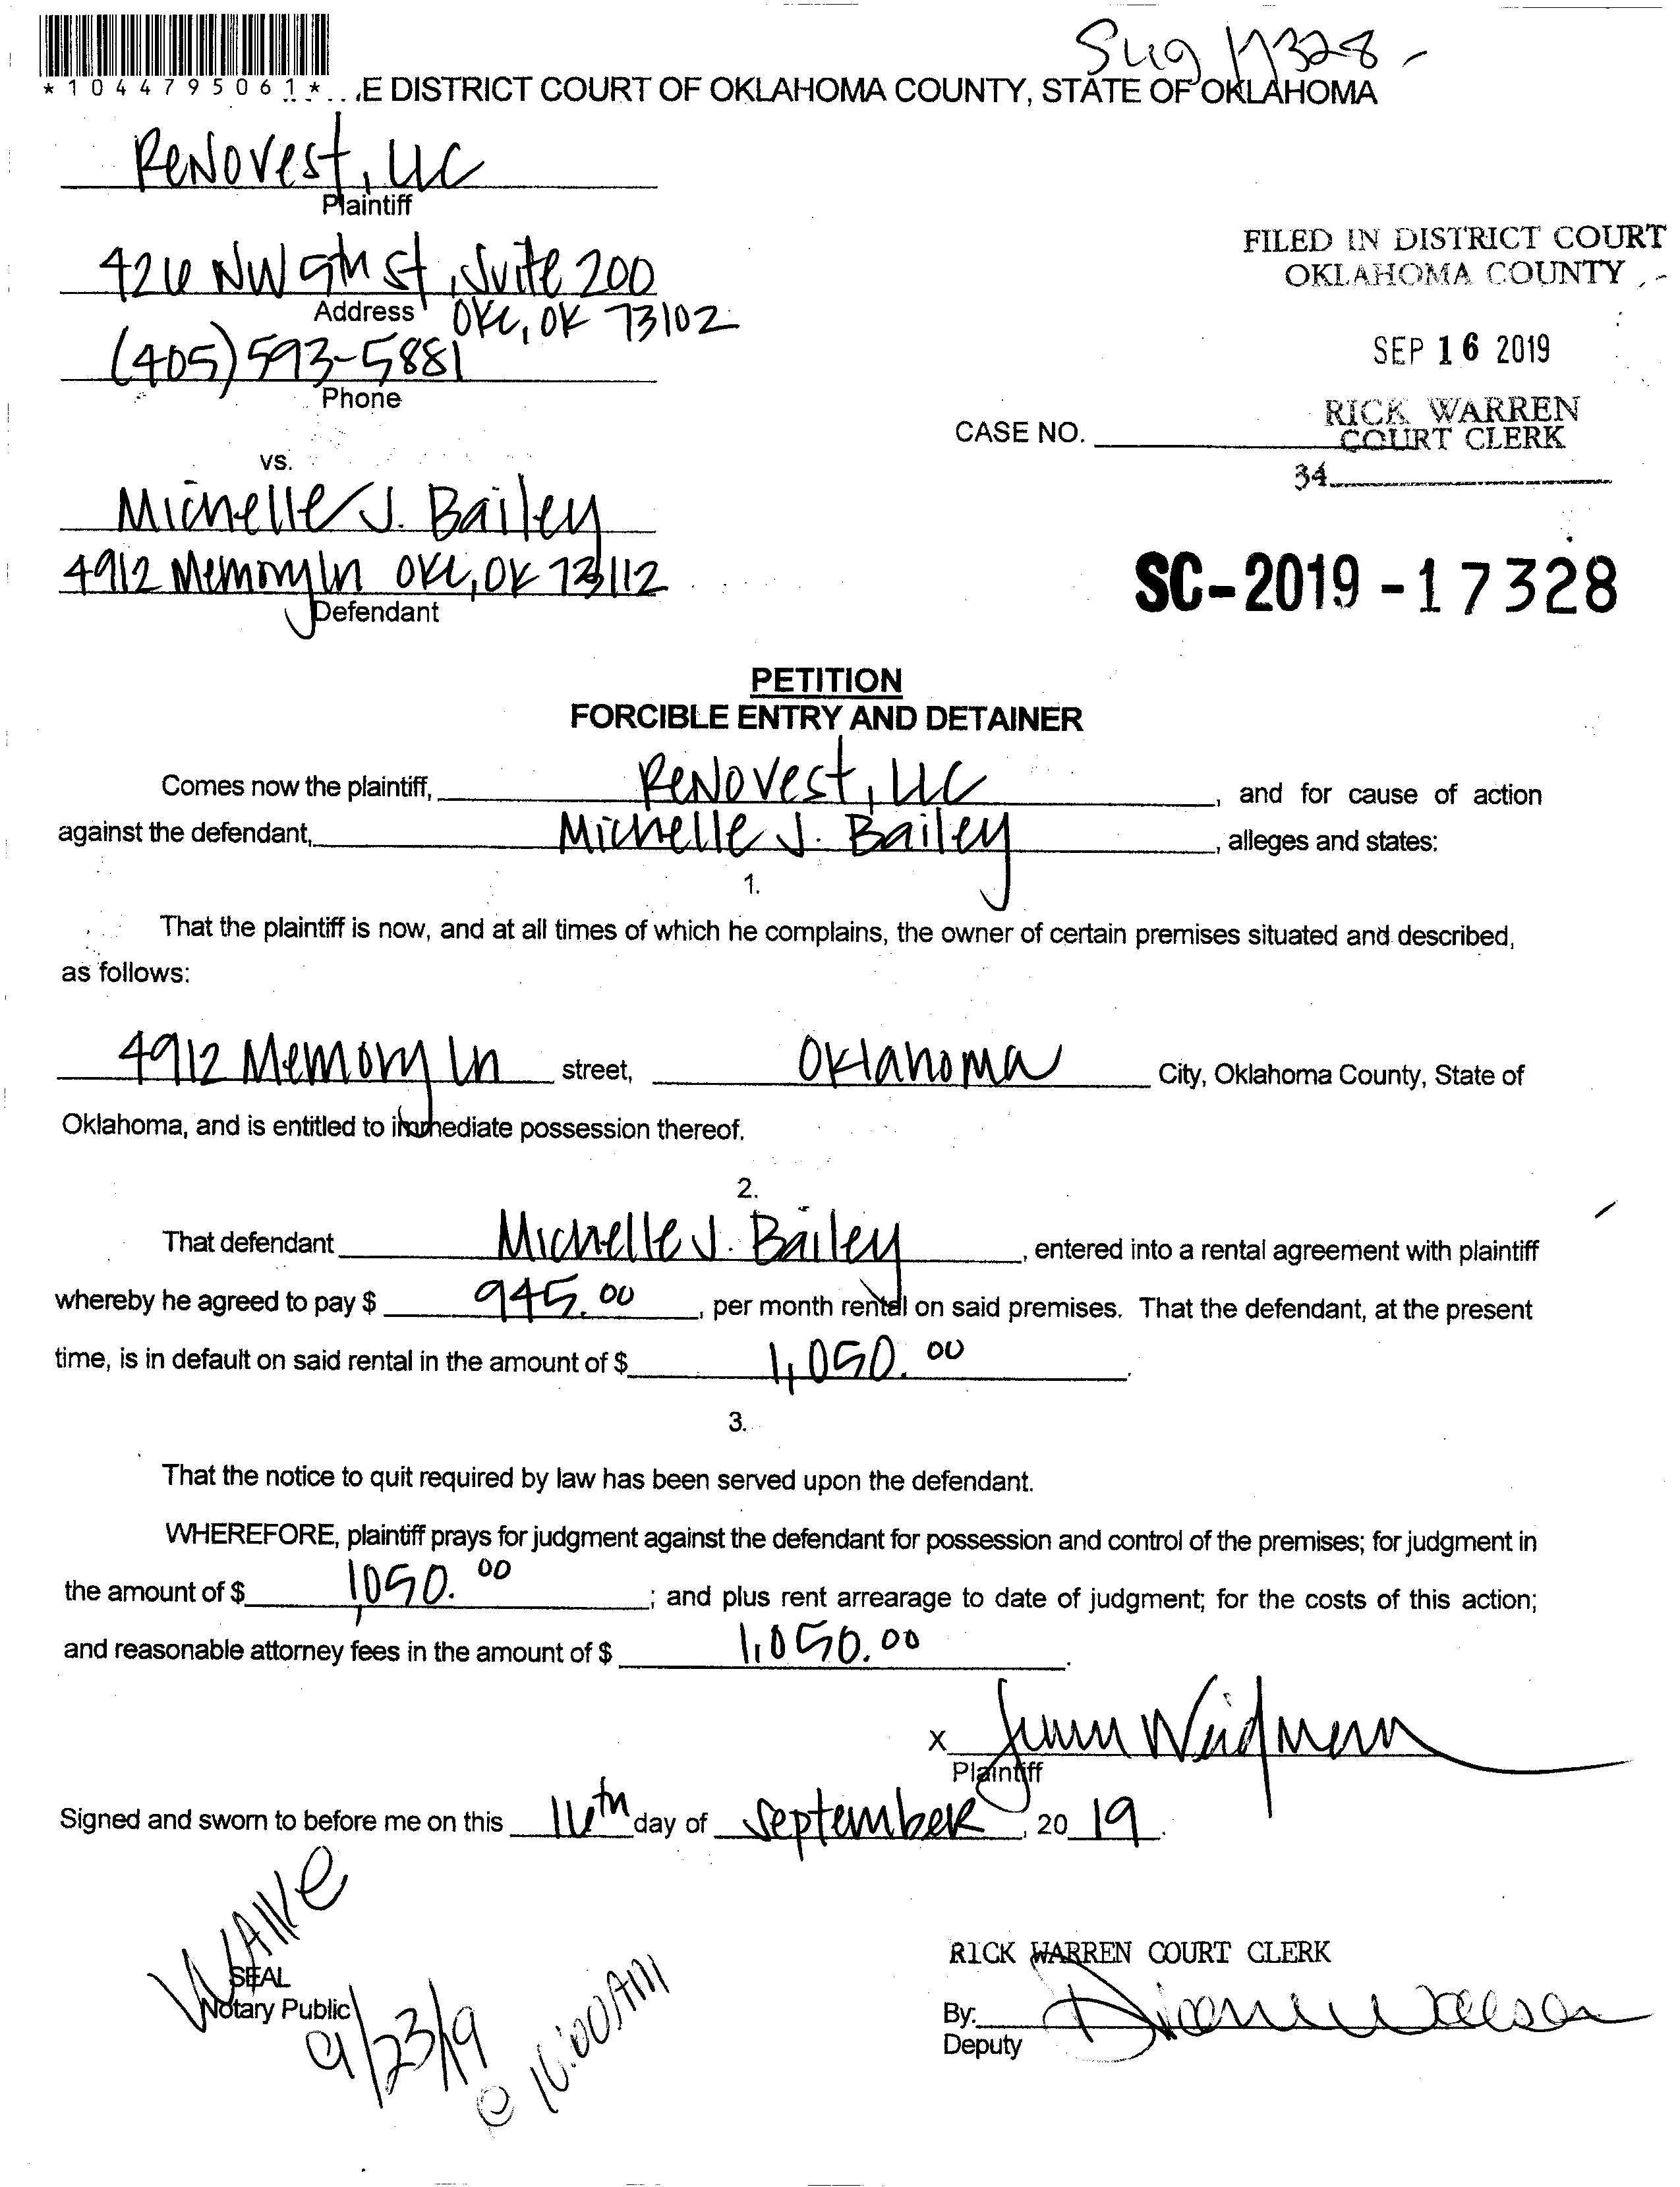 S49 17328
*1044795061* E DISTRICT COURT OF OKLAHOMA COUNTY, STATE OF OKLAHOMA
ReNovest, LLC
Plaintiff
426 NW 5th St, Suite 200
Address OKC, OK 73102
(405) 593-5881
Phone
FILED IN DISTRICT COURT
OKLAHOMA COUNTY
SEP 16 2019
RICK WARREN
COURT CLERK
34
CASE NO.
vs.
Michelle J. Bailey
4912 Memory Ln OKC, OK 73112
Defendant
SC-2019-17328
PETITION
FORCIBLE ENTRY AND DETAINER
Comes now the plaintiff, ReNovest, LLC, and for cause of action
against the defendant, Michelle J. Bailey, alleges and states:
1.
That the plaintiff is now, and at all times of which he complains, the owner of certain premises situated and described,
as follows:
4912 Memory Ln street, Oklahoma City, Oklahoma County, State of
Oklahoma, and is entitled to immediate possession thereof.
2.
That defendant Michelle J. Bailey, entered into a rental agreement with plaintiff
whereby he agreed to pay $ 945.00, per month rental on said premises. That the defendant, at the present
time, is in default on said rental in the amount of $ 1,050.00.
3.
That the notice to quit required by law has been served upon the defendant.
WHEREFORE, plaintiff prays for judgment against the defendant for possession and control of the premises; for judgment in
the amount of $ 1,050.00; and plus rent arrearage to date of judgment; for the costs of this action;
and reasonable attorney fees in the amount of $ 1,050.00.
X
Plaintiff
Signed and sworn to before me on this 16th day of September, 2019.
WAIVE
SEAL
Notary Public
9/23/19
@ 10:00AM
RICK WARREN COURT CLERK
By:
Deputy